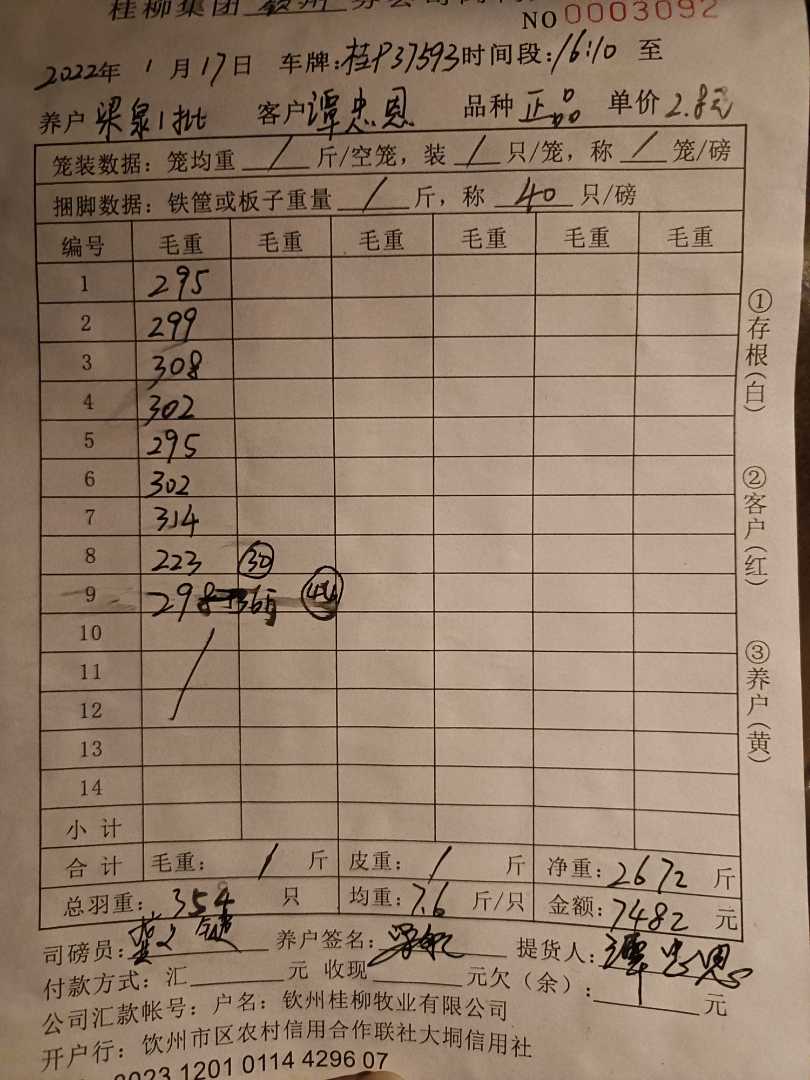 桂柳集团 钦州 分公司
NO 0003092
2022年 1 月 17 日 车牌:桂P37593 时间段:16:10 至
养户 梁泉1批 客户 谭忠恩 品种 正品 单价 2.8元
笼装数据：笼均重 / 斤/空笼，装 / 只/笼，称 / 笼/磅
捆脚数据：铁筐或板子重量 / 斤，称 40 只/磅
编号 毛重 毛重 毛重 毛重 毛重 毛重
1 295
2 299
3 308
4 302
5 295
6 302
7 314
8 223 ㉚
9 298 36斤 44
10
11 /
12
13
14
小 计
合 计 毛重： / 斤 皮重： / 斤 净重：2672 斤
总羽重：354 只 均重：7.6 斤/只 金额：7482 元
司磅员: 养户签名: 提货人: 谭忠恩
付款方式：汇 元 收现 元欠（余）: 元
公司汇款帐号：户名：钦州桂柳牧业有限公司
开户行：钦州市区农村信用合作联社大垌信用社
0023 1201 0114 4296 07
①存根(白)
②客户(红)
③养户(黄)